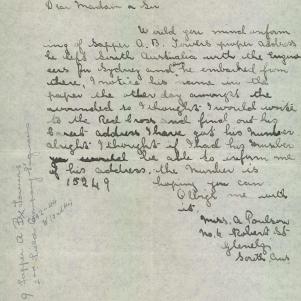 Dear Madam or Sir
Would you mind inform
ing of Sapper A. B. Towers proper address
he left South Australia with the Engine
eers for Sydney and he embarked from
there, I notice his name in the
paper the other day amongst the
wounded so I thought I would write
to the Red Cross and find out his
address I have got his Number
alright I thought if I had his Number
you would be able to inform me
of his address. the Number is
15249
hoping you can
Oblige me with
it.
Miss. A Poulson
No. 4 Robert St
Glenelg
South Aus
Sapper A B Towers